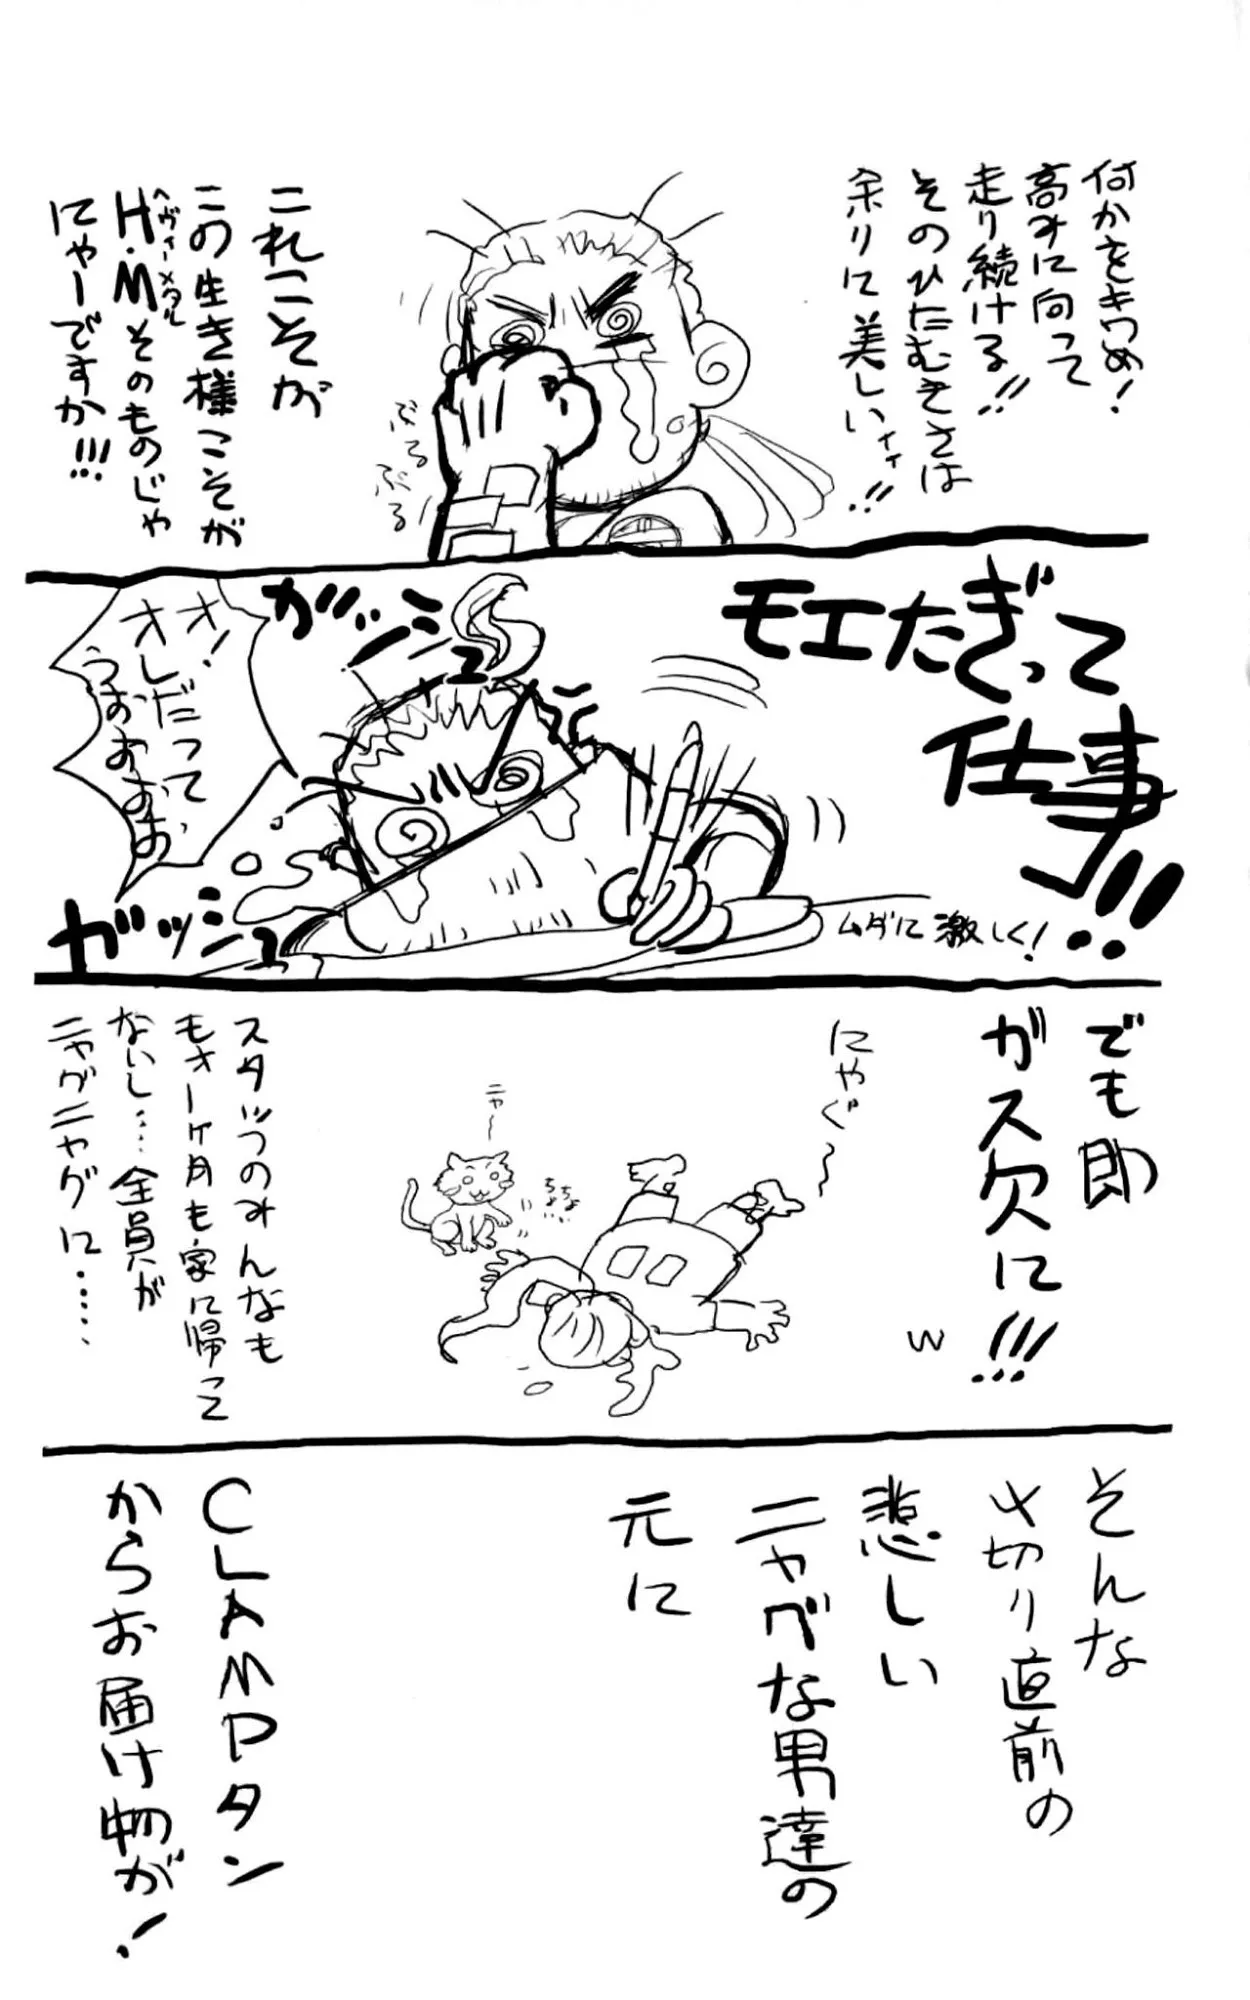 何かをきわめ!
高みに向って
走り続ける!!
そのひたむきさは
余りに美しいィィ!!
ぶるぶる
これこそが
この生き様こそが
H・Mそのものじゃ
ヘヴィーメタル
にゃーですか!!!
モエたぎって
仕事!!
ムダに激しく!
ガッシュ
オ!
オレだって
うおおおお
ガッシュ
でも即
ガス欠に!!!
w
にゃぐ〜
ニャ〜
ちょい
ちょい
スタッフのみんなも
もオ一ヶ月も家に帰って
ないし……全員が
ニャグニャグに……
そんな
〆切り直前の
悲しい
ニャベな男達の
元に
CLAMPタン
からお届け物が!